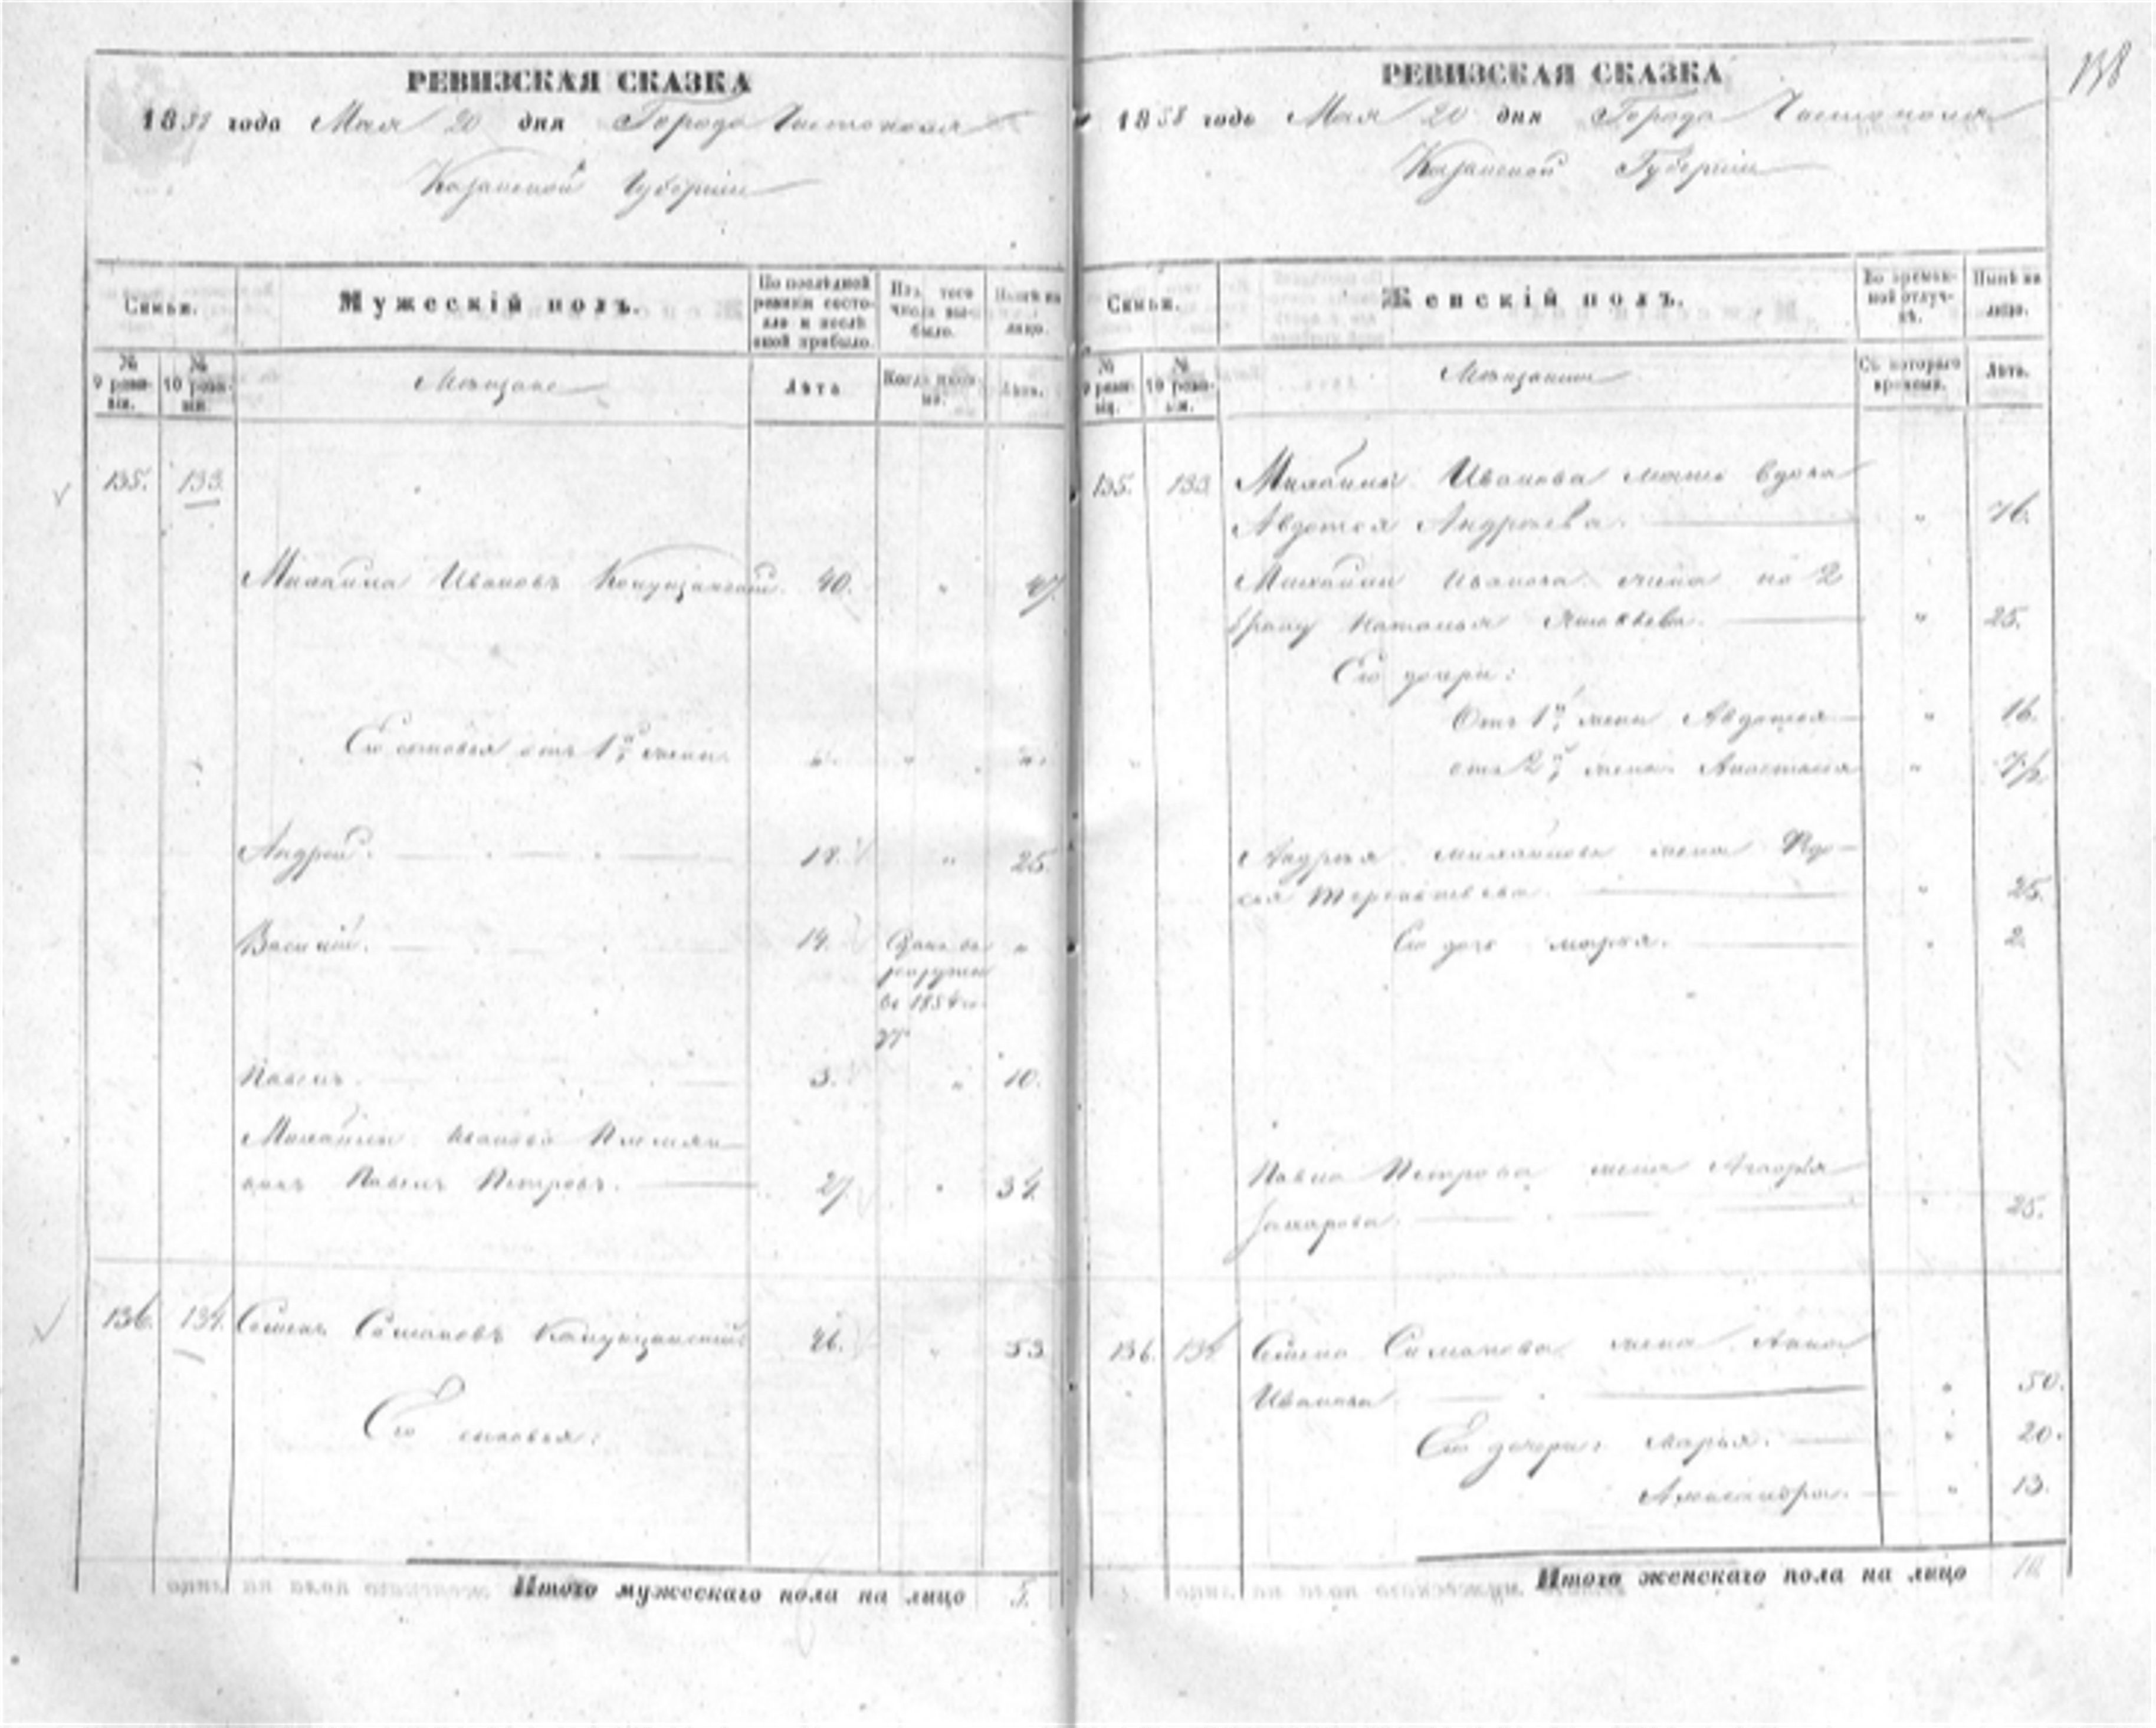 РЕВИЗСКАЯ СКАЗКА
1858 года Мая 20 дня Города Чистополя
Казанской Губернiи
Семьи.
Мужескiй полъ.
По последней ревизiи состояло и после оной прибыло.
Изъ того числа выбыло.
Ныне на лицо.
№ 9 ревизiи.
№ 10 ревизiи.
Мещане
Лета
Когда именно.
Лета.
135. 133.
Михайла Ивановъ 40. " 47.
Его сыновья отъ 1й жены " " "
Андрей. 18. " 25.
Василiй. 14. Сданъ въ "
рекруты
въ 1854 го-
ду
Павелъ. 3. " 10.
Михайлы Иванова Племян-
никъ Павелъ Петровъ. 27. " 34.
136. 134. Семенъ 46. " 53
Его сыновья:
Итого мужескаго пола на лицо 5.
138
РЕВИЗСКАЯ СКАЗКА
1858 года Мая 20 дня Города Чистополя
Казанской Губернiи
Семьи.
Женскiй полъ.
Во временной отлучкѣ.
Ныне на лицо.
№ 9 ревизiи.
№ 10 ревизiи.
Мещанки
Съ котораго времени.
Лета.
135. 133. Михайлы Иванова мать вдова
Авдотья Андреева. " 76.
Михайлы Иванова жена по 2
браку Наталья " 25.
Его дочери:
Отъ 1й жены Авдотья " 16.
отъ 2й жены Анастасия "
Андрея Михайлова жена
" 25.
Его дочь Марья. " 2.
Павла Петрова жена
Захарова. " 25.
136. 134 Семена жена Анна
Иванова " 50.
Его дочери: Марья. " 20.
Александра. " 13.
Итого женскаго пола на лицо 10